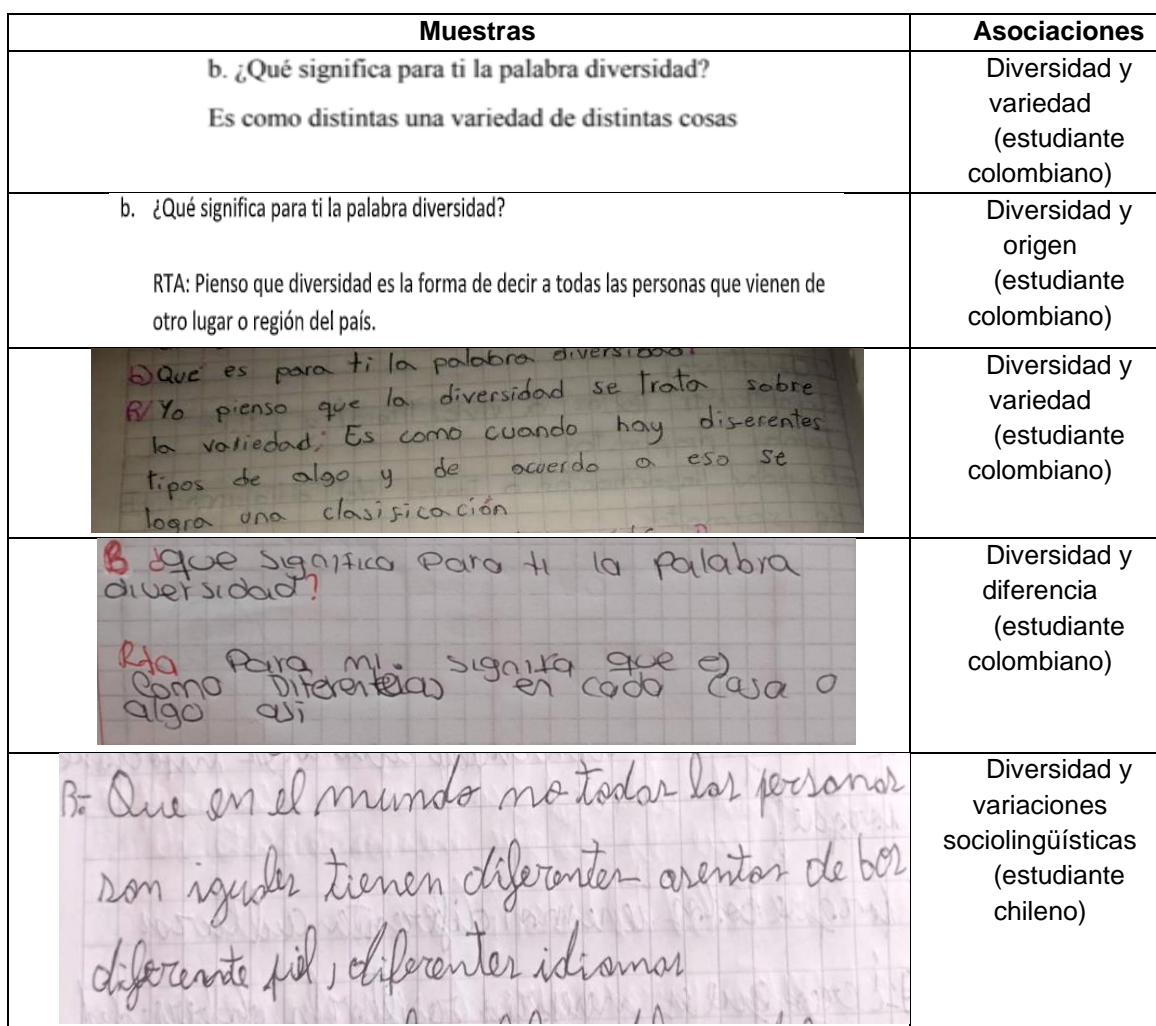 Muestras
Asociaciones
b. ¿Qué significa para ti la palabra diversidad?
Es como distintas una variedad de distintas cosas
Diversidad y
variedad
(estudiante
colombiano)
b. ¿Qué significa para ti la palabra diversidad?
RTA: Pienso que diversidad es la forma de decir a todas las personas que vienen de
otro lugar o región del país.
Diversidad y
origen
(estudiante
colombiano)
b) Que es para ti la palabra diversidad
R/ Yo pienso que la diversidad se trata sobre
la variedad; Es como cuando hay diferentes
tipos de algo y de acuerdo a eso se
logra una clasificación
Diversidad y
variedad
(estudiante
colombiano)
B ¿que significa para ti la palabra
diversidad?
Rta Para mi. signifa que es
como Diferencias en cada casa o
algo asi
Diversidad y
diferencia
(estudiante
colombiano)
B:- Que en el mundo no todas las personas
son iguales tienen diferentes asentos de bos
diferente piel, diferentes idiomas
Diversidad y
variaciones
sociolingüísticas
(estudiante
chileno)